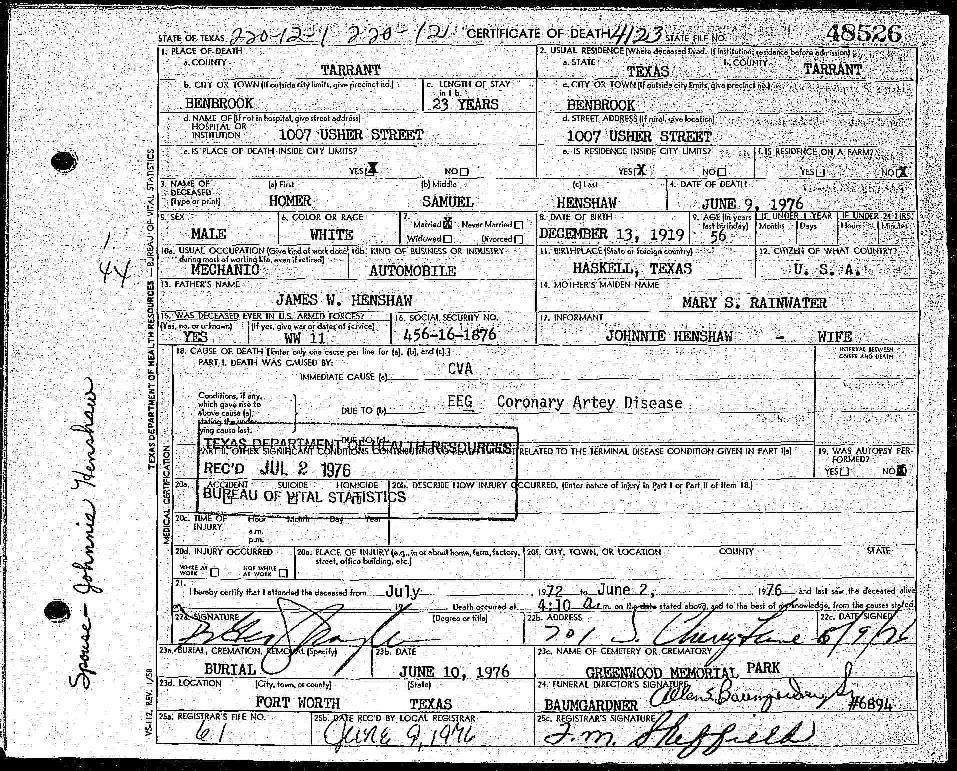 STATE OF TEXAS 220-12-1 220-121 CERTIFICATE OF DEATH 4123 STATE FILE NO. 48526
1. PLACE OF DEATH 2. USUAL RESIDENCE (Where deceased lived. If institution: residence before admission)
a. COUNTY TARRANT a. STATE TEXAS b. COUNTY TARRANT
b. CITY OR TOWN (If outside city limits, give precinct no.) c. LENGTH OF STAY in 1b. c. CITY OR TOWN (If outside city limits, give precinct no.)
BENBROOK 23 YEARS BENBROOK
d. NAME OF (If not in hospital, give street address) HOSPITAL OR INSTITUTION d. STREET ADDRESS (If rural, give location)
1007 USHER STREET 1007 USHER STREET
e. IS PLACE OF DEATH INSIDE CITY LIMITS? e. IS RESIDENCE INSIDE CITY LIMITS? f. IS RESIDENCE ON A FARM?
YES X NO YES X NO YES NO X
3. NAME OF DECEASED (Type or print) (a) First (b) Middle (c) Last 4. DATE OF DEATH
HOMER SAMUEL HENSHAW JUNE 9, 1976
5. SEX 6. COLOR OR RACE 7. Married X Never Married Widowed Divorced 8. DATE OF BIRTH 9. AGE (In years last birthday) IF UNDER 1 YEAR Months Days IF UNDER 24 HRS. Hours Minutes
MALE WHITE DECEMBER 13, 1919 56
10a. USUAL OCCUPATION (Give kind of work done during most of working life, even if retired) 10b. KIND OF BUSINESS OR INDUSTRY 11. BIRTHPLACE (State or foreign country) 12. CITIZEN OF WHAT COUNTRY?
MECHANIC AUTOMOBILE HASKELL, TEXAS U. S. A.
13. FATHER'S NAME 14. MOTHER'S MAIDEN NAME
JAMES W. HENSHAW MARY S. RAINWATER
15. WAS DECEASED EVER IN U.S. ARMED FORCES? 16. SOCIAL SECURITY NO. 17. INFORMANT
(Yes, no, or unknown) (If yes, give war or dates of service)
YES WW 11 456-16-1876 JOHNNIE HENSHAW - WIFE
18. CAUSE OF DEATH [Enter only one cause per line for (a), (b), and (c).] INTERVAL BETWEEN ONSET AND DEATH
PART I. DEATH WAS CAUSED BY:
IMMEDIATE CAUSE (a) CVA
Conditions, if any, which gave rise to above cause (a), stating the underlying cause last.
DUE TO (b) EEG Coronary Artey Disease
DUE TO (c)
PART II. OTHER SIGNIFICANT CONDITIONS CONTRIBUTING TO DEATH BUT NOT RELATED TO THE TERMINAL DISEASE CONDITION GIVEN IN PART I(a) 19. WAS AUTOPSY PERFORMED?
YES NO X
TEXAS DEPARTMENT OF HEALTH RESOURCES
REC'D JUL 2 1976
BUREAU OF VITAL STATISTICS
20a. ACCIDENT SUICIDE HOMICIDE 20b. DESCRIBE HOW INJURY OCCURRED. (Enter nature of injury in Part I or Part II of item 18.)
20c. TIME OF INJURY Hour Month Day Year
a.m.
p.m.
20d. INJURY OCCURRED 20e. PLACE OF INJURY (e.g., in or about home, farm, factory, street, office building, etc.) 20f. CITY, TOWN, OR LOCATION COUNTY STATE
WHILE AT WORK NOT WHILE AT WORK
21. I hereby certify that I attended the deceased from July 1972 to June 2, 1976 and last saw the deceased alive
19 Death occurred at 4:10 a.m. on the date stated above, and to the best of my knowledge, from the causes stated.
22a. SIGNATURE (Degree or title) 22b. ADDRESS 22c. DATE SIGNED
701 S. Cherry Lane 6/9/76
23a. BURIAL, CREMATION, REMOVAL (Specify) 23b. DATE 23c. NAME OF CEMETERY OR CREMATORY
BURIAL JUNE 10, 1976 GREENWOOD MEMORIAL PARK
23d. LOCATION (City, town, or county) (State) 24. FUNERAL DIRECTOR'S SIGNATURE
FORT WORTH TEXAS BAUMGARDNER Allen S. Baumgardner Sr. #6894
25a. REGISTRAR'S FILE NO. 25b. DATE REC'D BY LOCAL REGISTRAR 25c. REGISTRAR'S SIGNATURE
61 June 9, 1976 F.M. Sheffield
TEXAS DEPARTMENT OF HEALTH RESOURCES — BUREAU OF VITAL STATISTICS
MEDICAL CERTIFICATION
VS-112, REV. 1/58
44
Spouse - Johnnie Henshaw